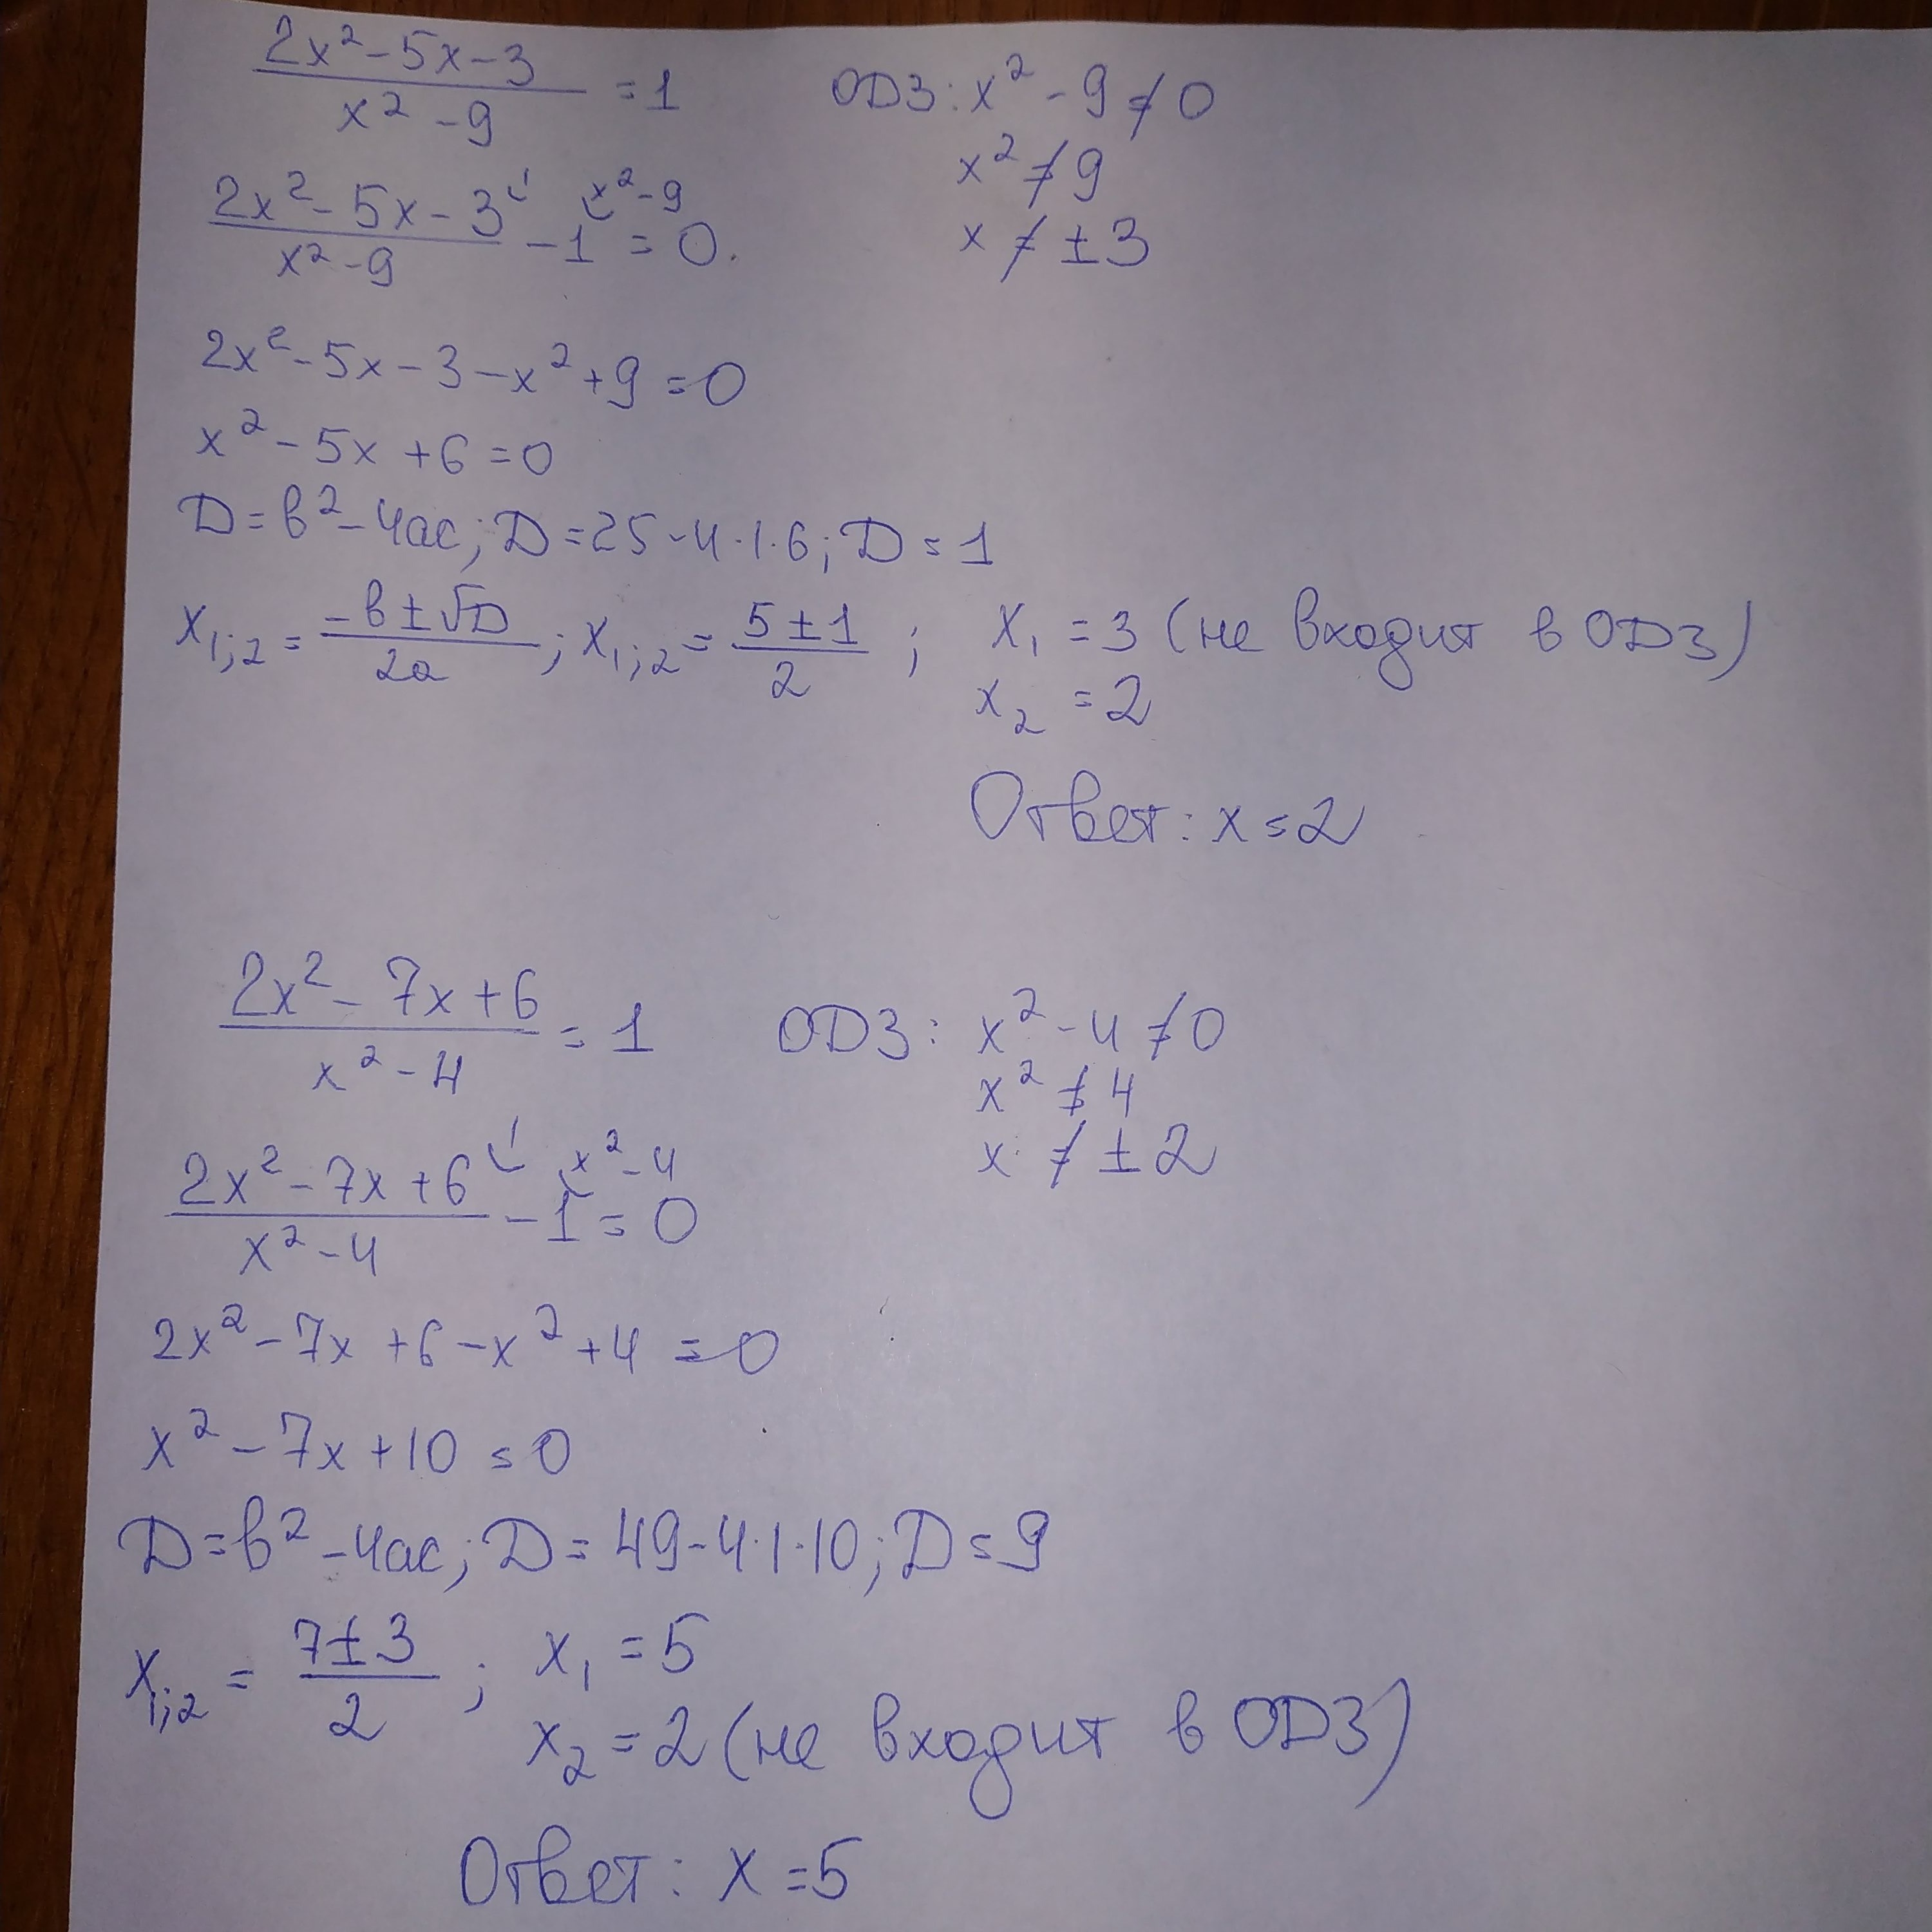 (2x² - 5x - 3)/(x² - 9) = 1    ОДЗ: x² - 9 ≠ 0
x² ≠ 9
(2x² - 5x - 3)/(x² - 9) ⌣1 - 1 ⌣x² - 9 = 0.    x ≠ ±3
2x² - 5x - 3 - x² + 9 = 0
x² - 5x + 6 = 0
D = b² - 4ac; D = 25 - 4·1·6; D = 1
x₁;₂ = (-b ± √D)/(2a); x₁;₂ = (5 ± 1)/2; x₁ = 3 (не входит в ОДЗ)
x₂ = 2
Ответ: x = 2
(2x² - 7x + 6)/(x² - 4) = 1    ОДЗ: x² - 4 ≠ 0
x² ≠ 4
x ≠ ±2
(2x² - 7x + 6)/(x² - 4) ⌣1 - 1 ⌣x² - 4 = 0
2x² - 7x + 6 - x² + 4 = 0
x² - 7x + 10 = 0
D = b² - 4ac; D = 49 - 4·1·10; D = 9
x₁;₂ = (7 ± 3)/2; x₁ = 5
x₂ = 2 (не входит в ОДЗ)
Ответ: x = 5